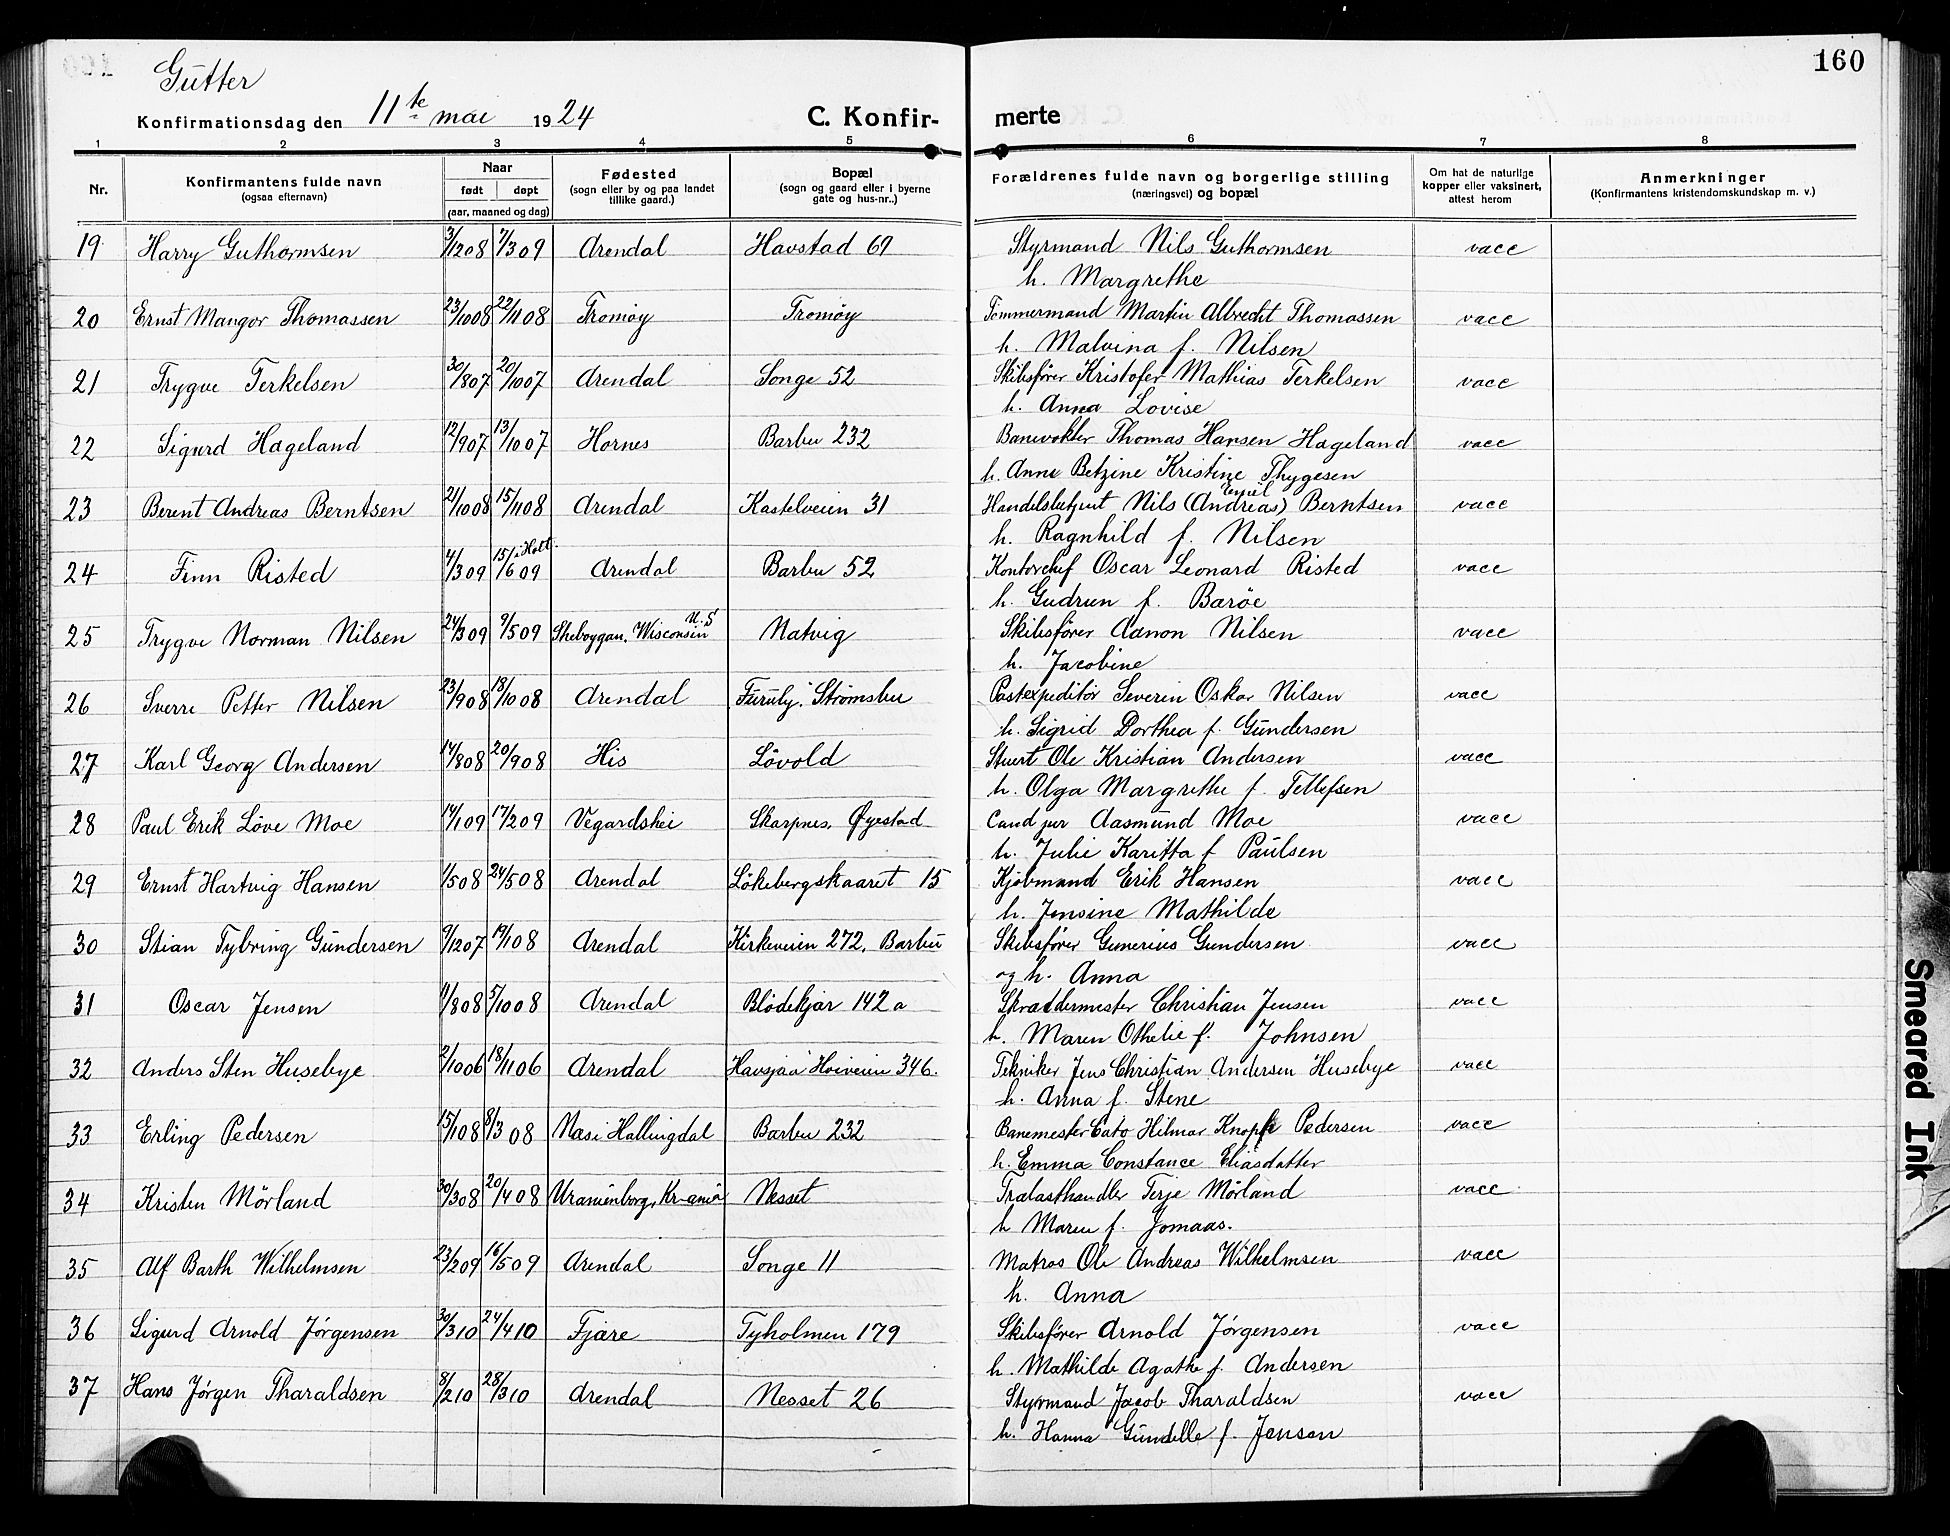 160
Gutter
Konfirmationsdag den 11te mai 1924
C. Konfir-
merte
1 2 3 4 5 6 7 8
Nr.
Konfirmantens fulde navn
(ogsaa efternavn)
Naar
født døpt
(aar, maaned og dag)
Fødested
(sogn eller by og paa landet
tillike gaard.)
Bopæl
(sogn og gaard eller i byerne
gate og hus-nr..)
Forældrenes fulde navn og borgerlige stilling
(næringsvei) og bopæl
Om hat de naturlige
kopper eller vaksinert,
attest herom
Anmerkninger
(Konfirmantens kristendomskundskap m. v.)
19 Harry Guthormsen 3/1208 7/309 Arendal Havstad 69 Styrmand Nils Guthormsen vacc
h. Margrethe
20 Ernst Mangor Thomassen 23/1008 22/1108 Tromøy Tromøy Tømmermand Martin Albrecht Thomassen vacc
h. Malvina f. Nilsen
21 Trygve Terkelsen 30/807 20/1007 Arendal Songe 52 Skibsfører Kristofer Mathias Terkelsen vacc
h. Anna Lovise
22 Sigurd Hageland 12/907 13/1007 Hornes Barbu 232 Banevokter Thomas Hansen Hageland vacc
h. Anne Betzine Kristine Thygesen
23 Berent Andreas Berntsen 21/1008 15/1108 Arendal Kastelveien 31 Handelsbetjent Nils (Andreas) Emil Berntsen vacc
h. Ragnhild f. Nilsen
24 Finn Risted 4/309 15/609 i Holt. Arendal Barbu 52 Kontorchef Oscar Leonard Risted vacc
h. Gudrun f. Barøe
25 Trygve Norman Nilsen 24/309 9/509 Sheboygan, Wisconsin U.S Natvig Skibsfører Aanon Nilsen vacc
h. Jacobine
26 Sverre Petter Nilsen 23/908 18/1008 Arendal "Furuly" Strømsbu Postexpeditör Severin Oskar Nilsen vacc
h. Sigrid Dorthea f. Gundersen
27 Karl Georg Andersen 14/808 20/908 His Lövold Stuert Ole Kristian Andersen vacc
h. Olga Margrethe f. Tellefsen
28 Paul Erik Löve Moe 14/109 17/209 Vegardshei Skarpnes, Øyestad Cand jur Aasmund Moe vacc
h. Julie Karitta f Paulsen
29 Ernst Hartvig Hansen 1/508 24/508 Arendal Lökebergskaaret 15 Kjøbmand Erik Hansen vacc
h. Jensine Mathilde
30 Stian Tybring Gundersen 9/1207 19/108 Arendal Kirkeveien 272, Barbu Skibsfører Gunerius Gundersen vacc
og h. Anna
31 Oscar Jensen 11/808 5/1008 Arendal Blödekjær 142 a Skræddermester Christian Jensen vacc
h. Maren Othelie f. Johnsen
32 Anders Sten Husebye 2/1006 18/1106 Arendal "Havsjaa" Höiveien 346. Tekniker Jens Christian Andersen Husebye vacc
h. Anna f. Stene
33 Erling Pedersen 15/108 8/308 Næs i Hallingdal Barbu 232 Banemester Cato Hilmar Knopf Pedersen vacc
h. Emma Constance Eliasdatter
34 Kristen Mörland 30/308 20/408 Uranienborg, Kr-ania Nesset Trælasthandler Terje Mörland vacc
h Maren f. Jomaas.
35 Alf Barth Wilhelmsen 23/209 16/509 Arendal Songe 11 Matros Ole Andreas Wilhelmsen vacc
h. Anna
36 Sigurd Arnold Jörgensen 30/310 24/410 Fjære Tyholmen 179 Skibsfører Arnold Jörgensen vacc
h. Mathilde Agathe f. Andersen
37 Hans Jörgen Tharaldsen 8/210 28/310 Arendal Nesset 26 Styrmand Jacob Tharaldsen vacc
h. Hanna Gundelle f. Jensen
Smeared Ink